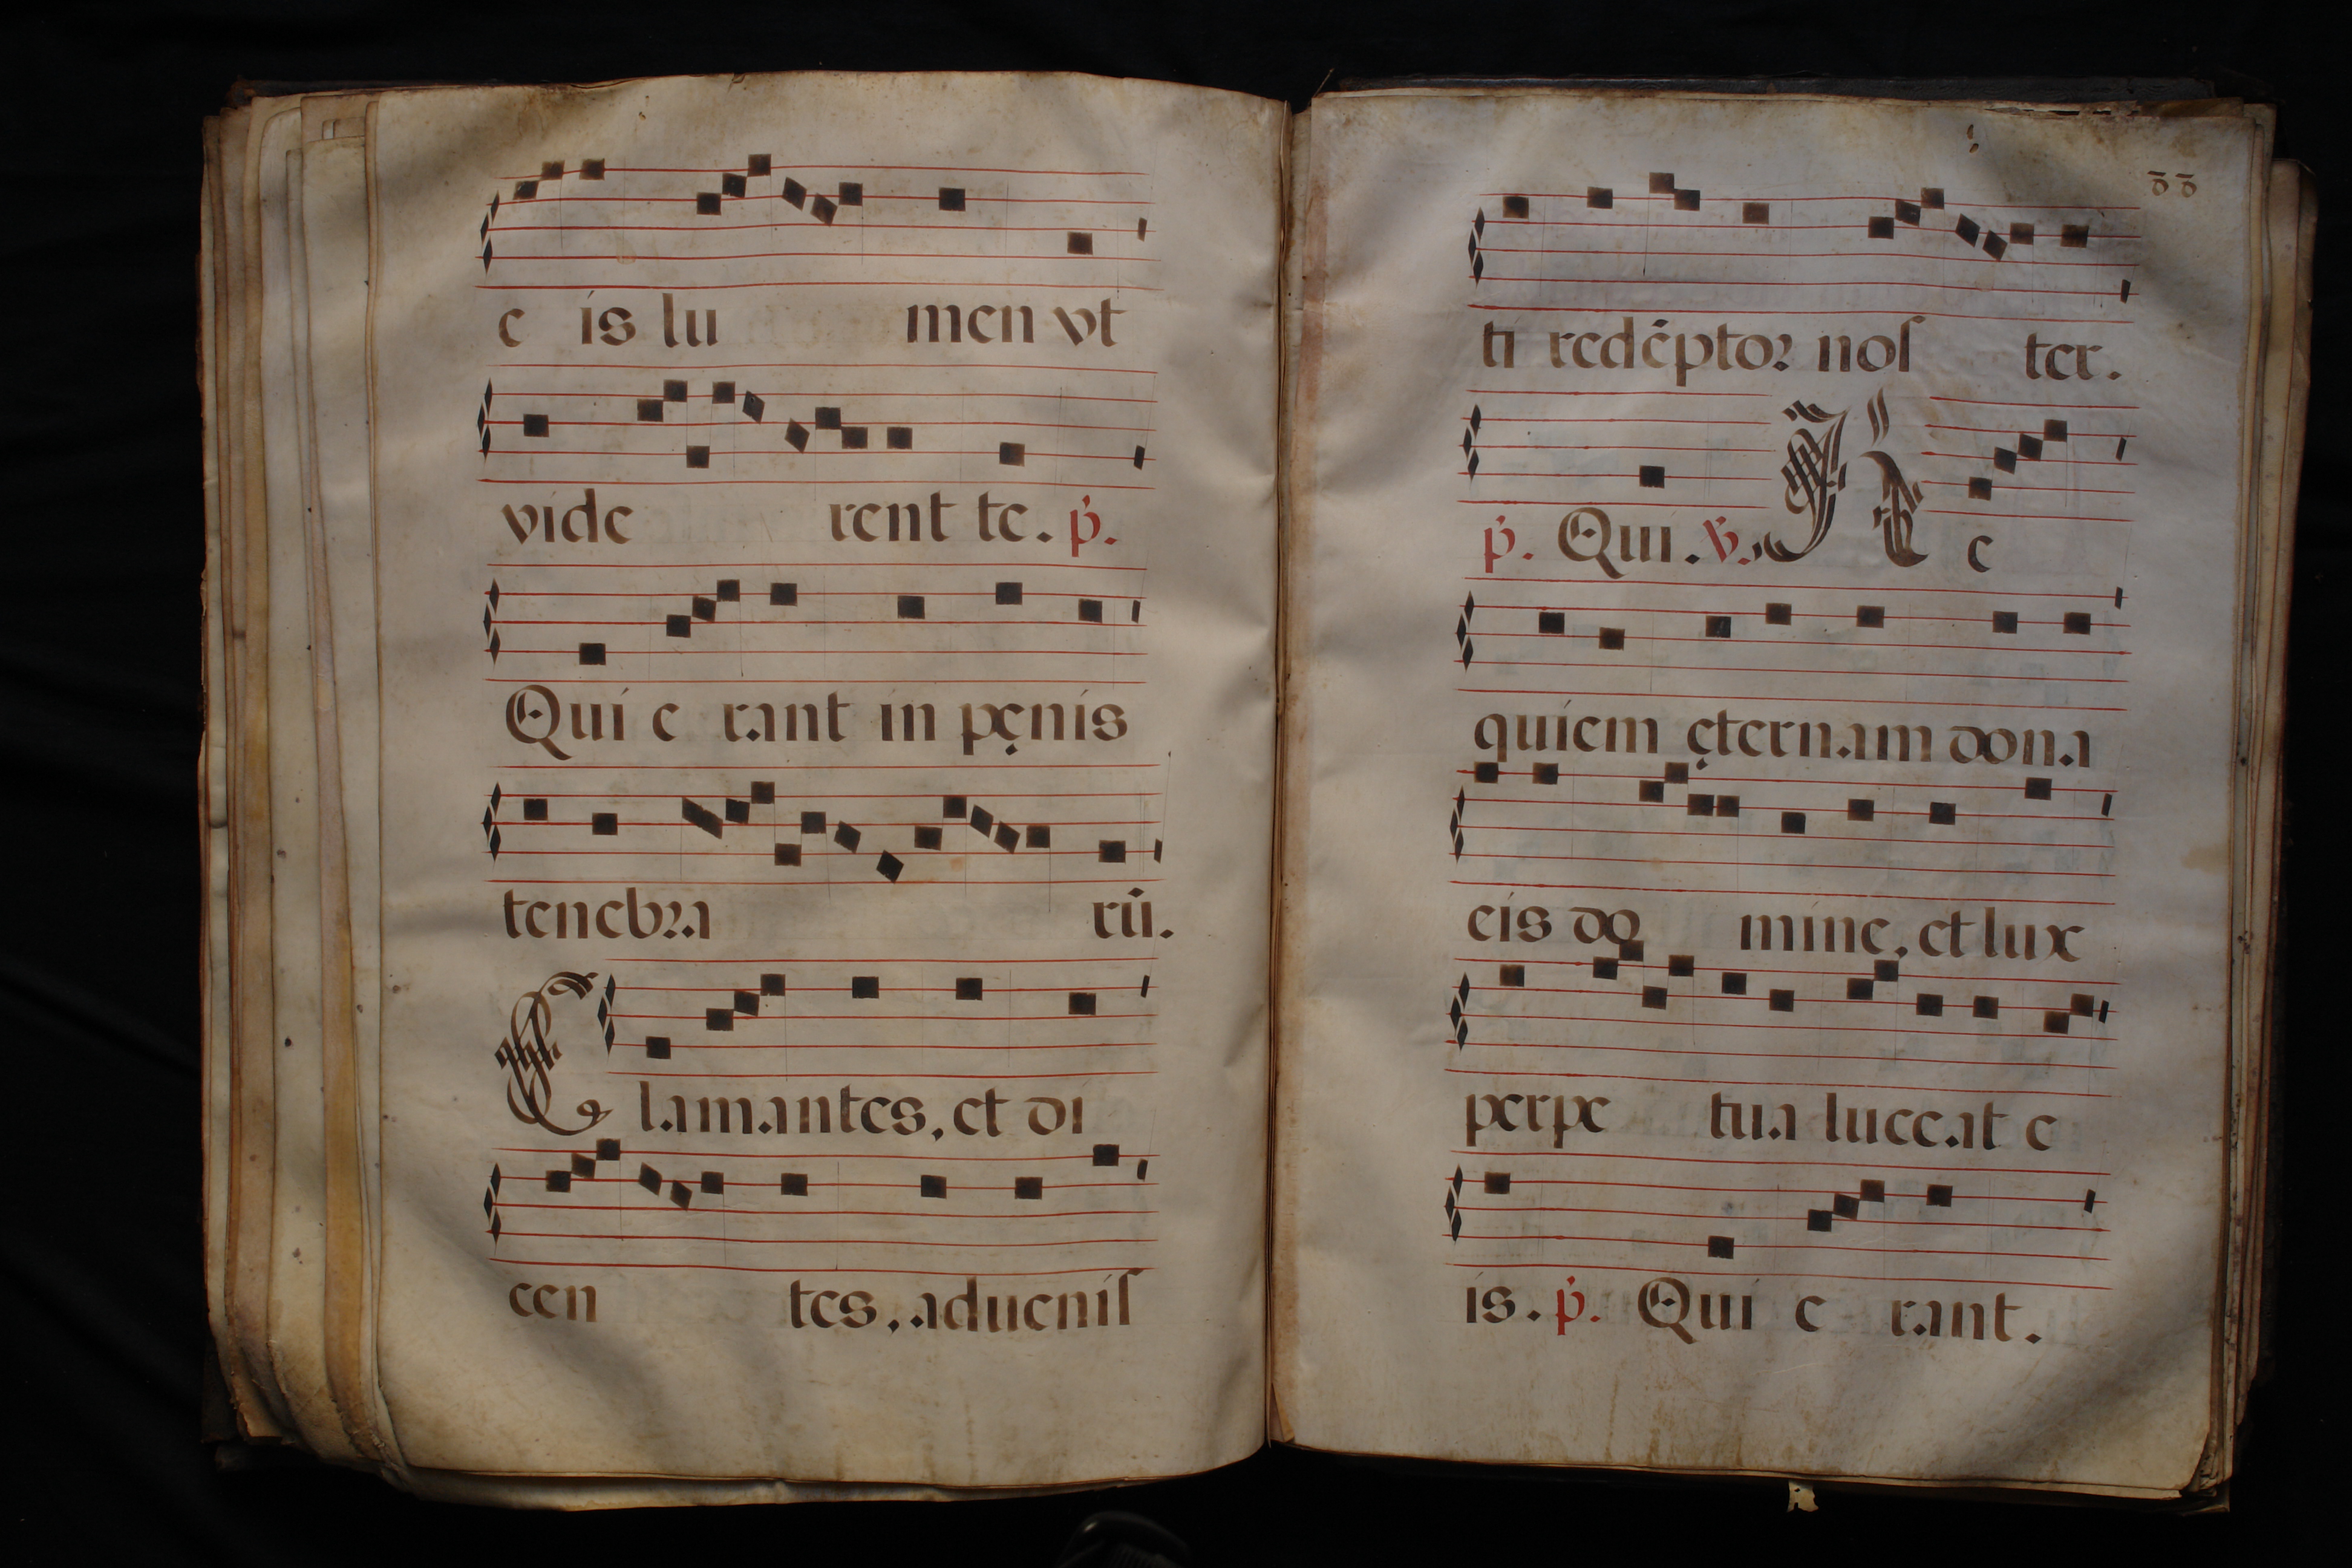 e is lu men vt
vide rent te. p̃.
Qui e rant in pęnis
tenebra rū.
Clamantes, et di
cen tes, aduenis
ti redēptor nos ter.
p̃. Qui. v. Re
quiem ęternam dona
eis do mine, et lux
perpe tua luceat e
is. p̃. Qui e rant.